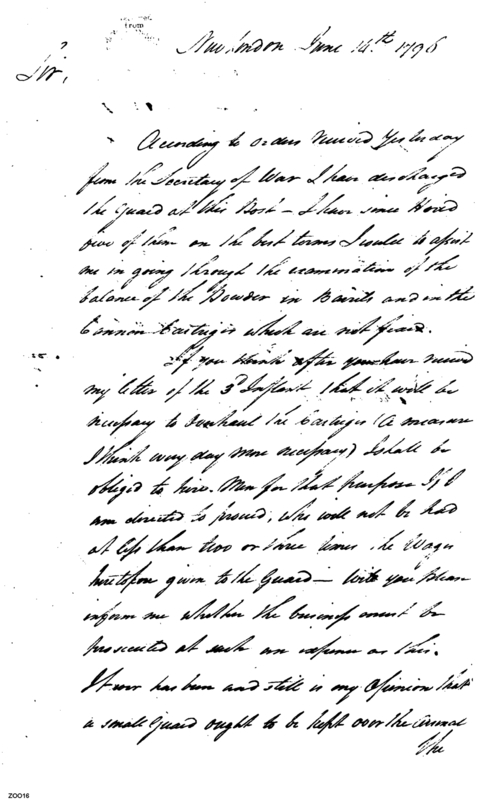 from
New London June 14th 1796
Sir,
According to orders received Yesterday
from the Secretary of War I have discharged
the Guard at this Post - I have since Hired
five of them on the best terms I could to assist
me in going through the examination of the
balance of the Powder in Barrils and in the
Cannon Cartriges which are not fixed.
If you think after you have received
my letter of the 3d Instant that it will be
necessary to Overhaul the Cartriges (A measure
I think every day more necessary) I shall be
obliged to hire Men for that purpose If I
am directed to proceed, who will not be had
at less than two or three times the Wages
heretofore given to the Guard - Will you Please
inform me whether the business must be
prosecuted at such an expence as this.
It ever has been and still is my Opinion that
a small Guard ought to be kept over the Arsenal
The
ZOO16